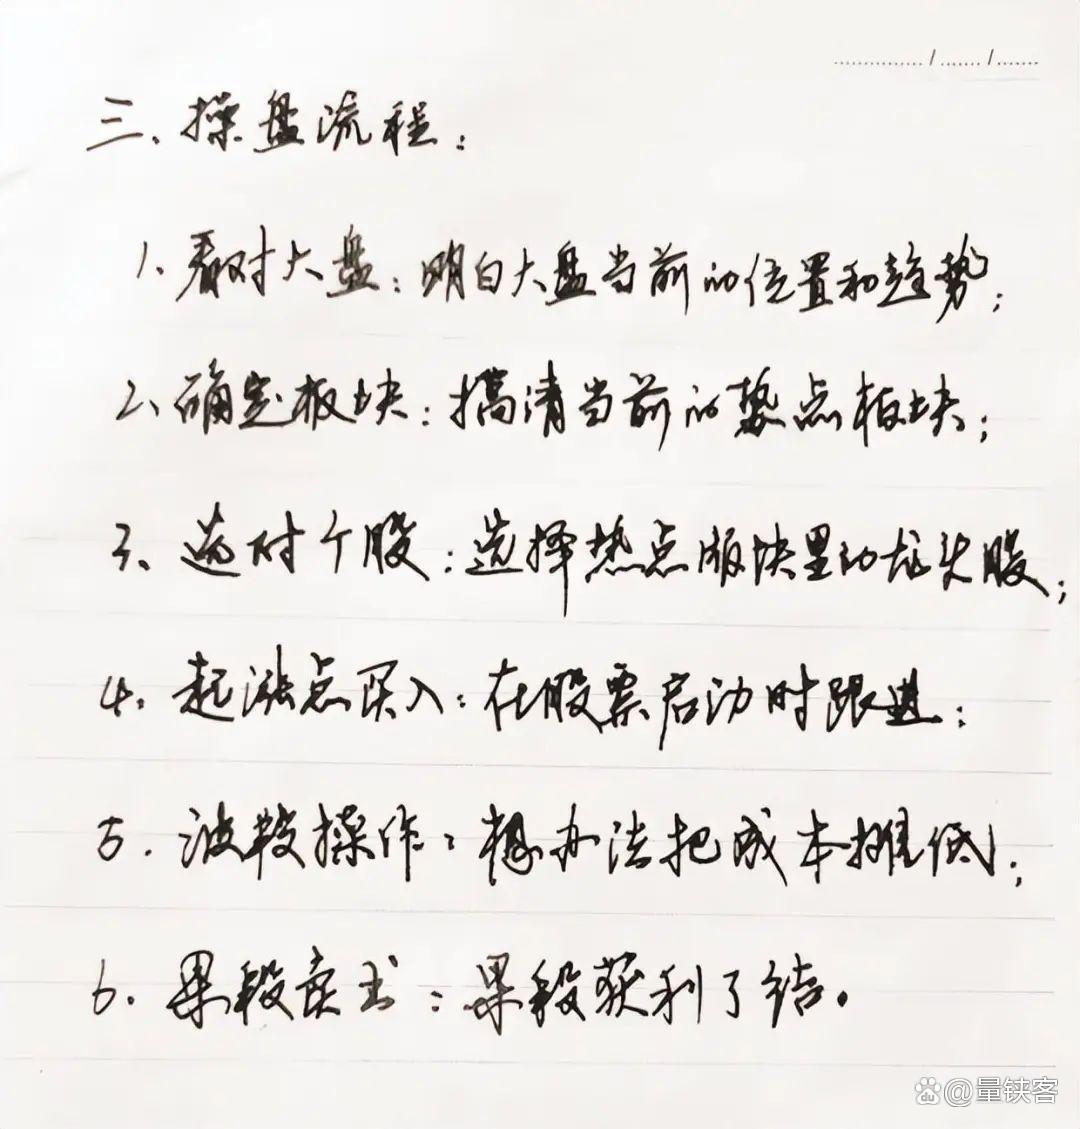 三、操盘流程：
1、看对大盘：明白大盘当前的位置和趋势；
2、确定板块：搞清当前的热点板块；
3、选对个股：选择热点版块里的龙头股；
4、起涨点买入：在股票启动时跟进；
5、波段操作：想办法把成本摊低；
6、果段卖出：果段获利了结。
@量铗客